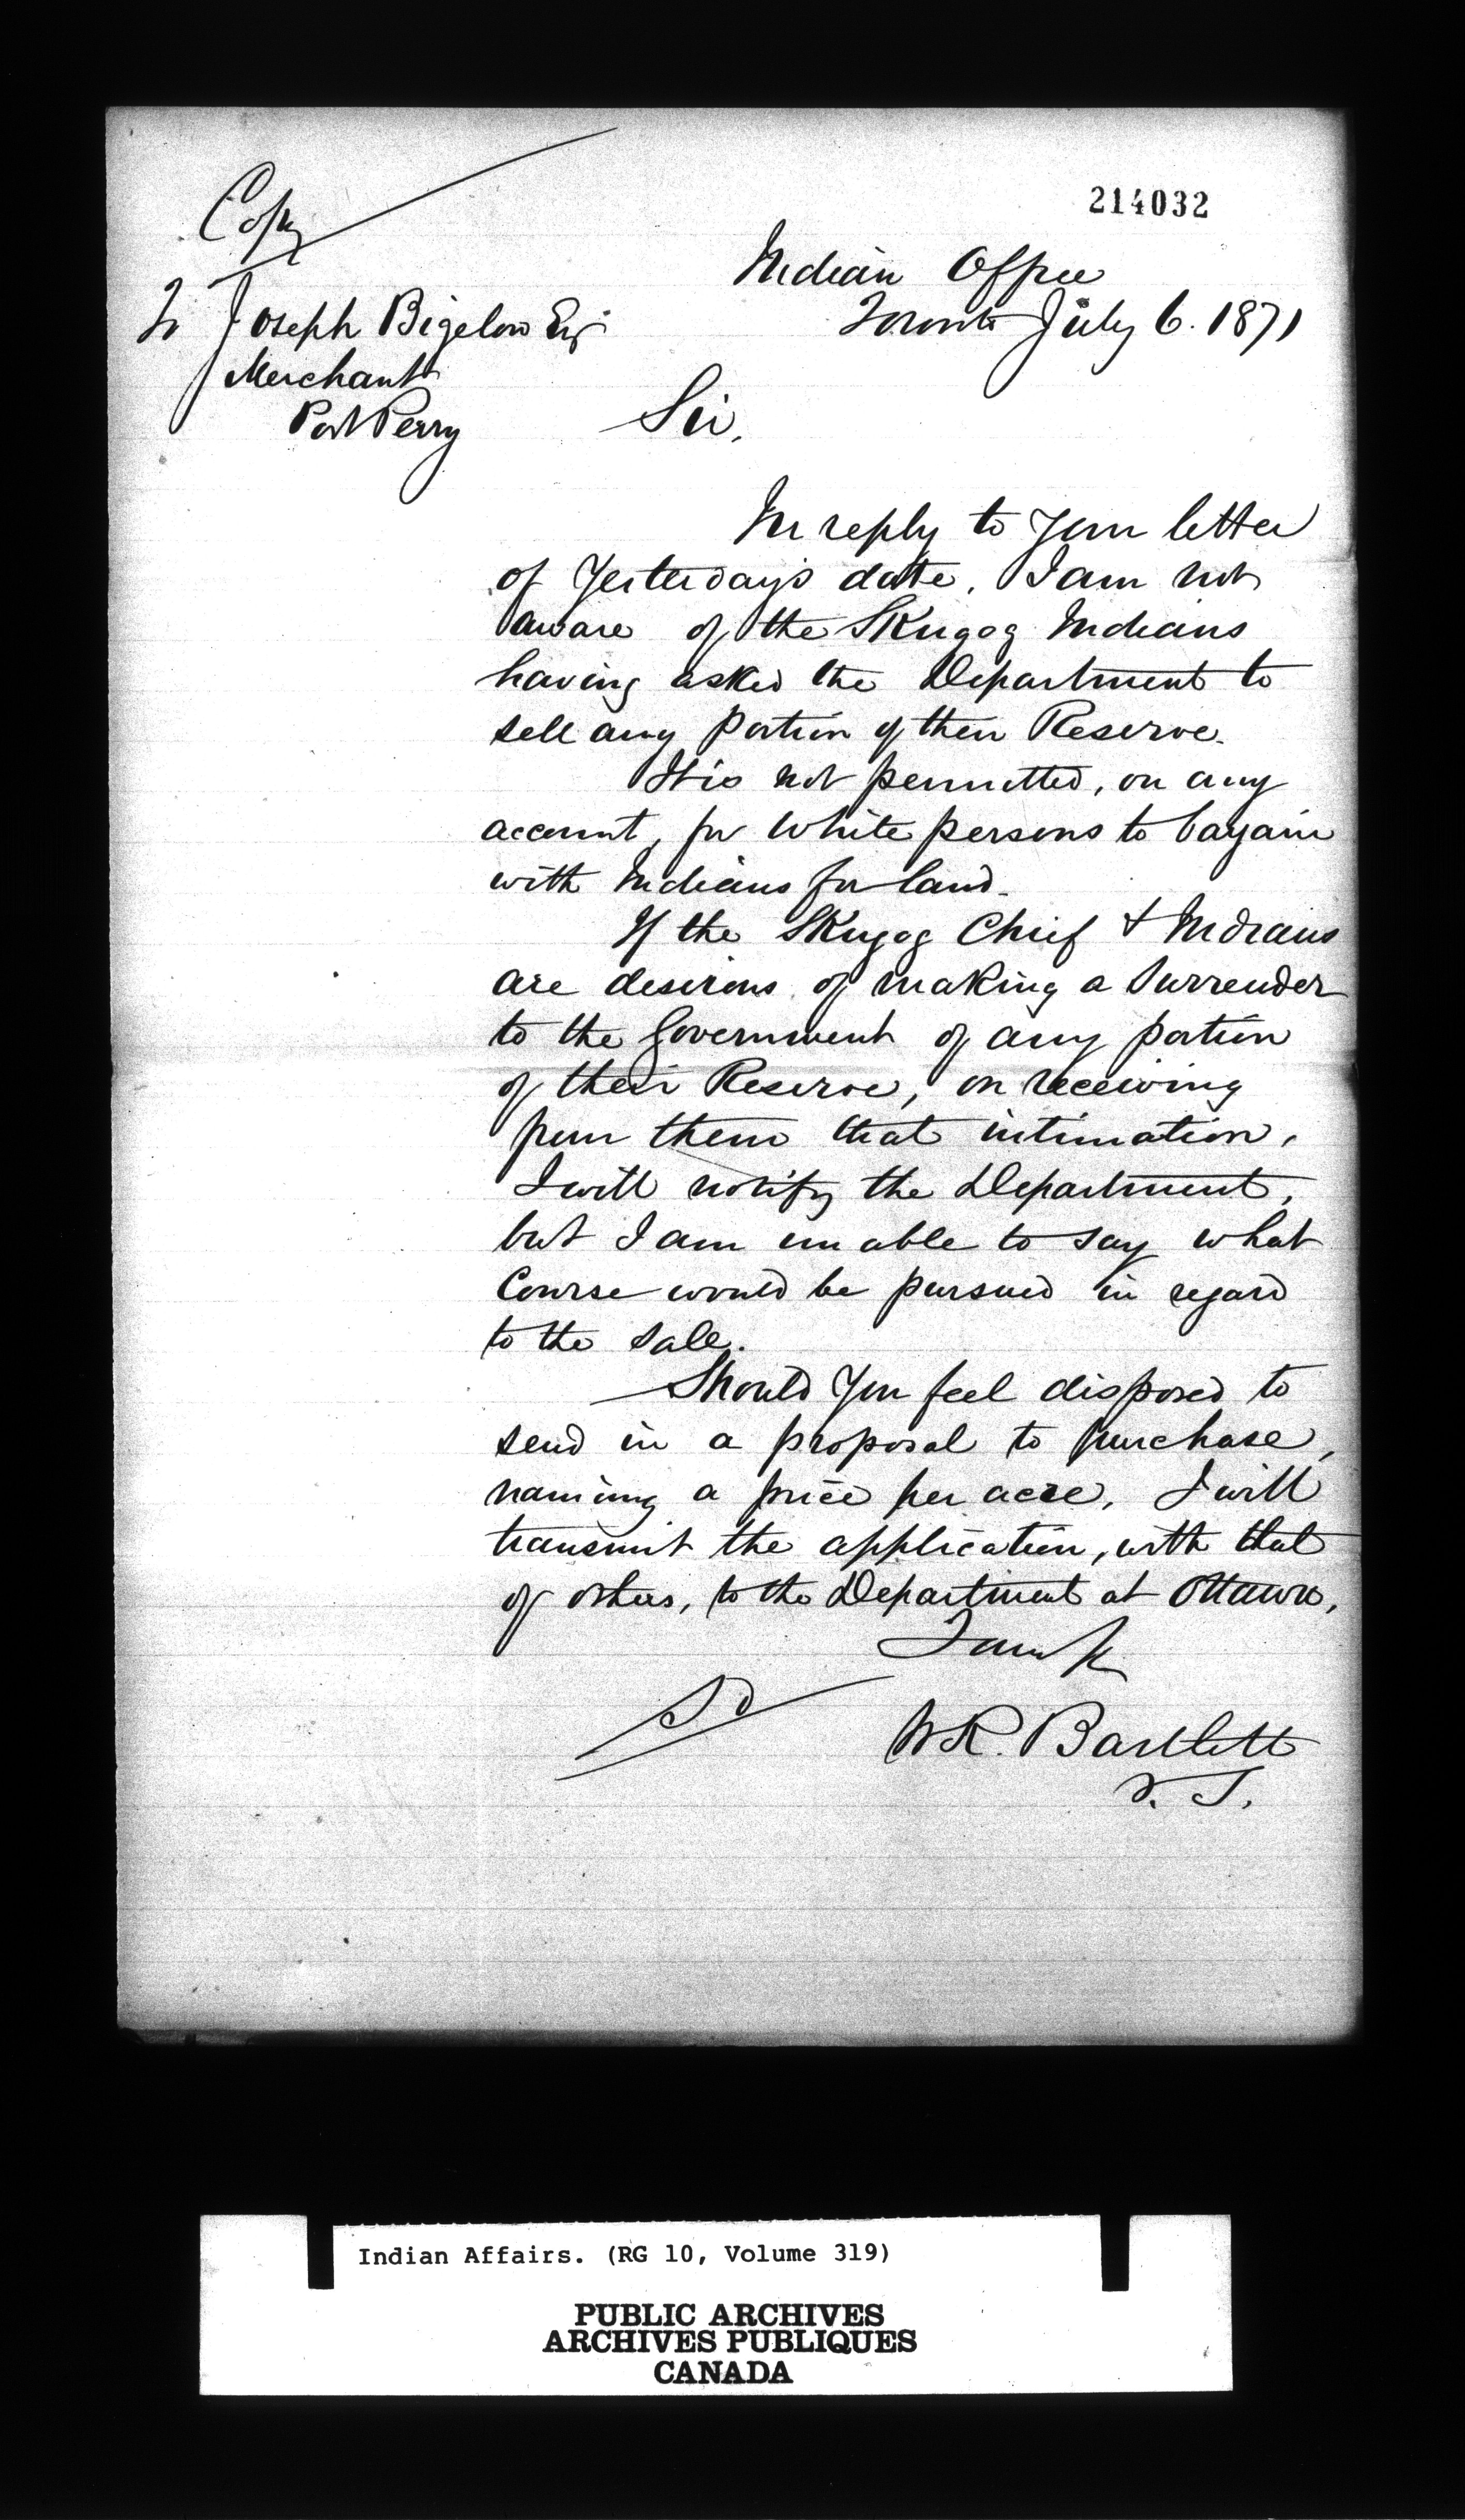 Copy
214032
Indian Office
Toronto July 6. 1871
To Joseph Bigelow Esq
Merchant
Port Perry
Sir,
In reply to your letter
of Yesterday's date, I am not
aware of the Skugog Indians
having asked the Department to
sell any portion of their Reserve.
It is not permitted, on any
account, for White persons to bargain
with Indians for land.
If the Skugog Chief & Indians
are desirous of making a Surrender
to the Government of any portion
of their Reserve, on receiving
from them that intimation,
I will notify the Department,
but I am unable to say what
Course would be pursued in regard
to the Sale.
Should You feel disposed to
send in a proposal to purchase,
naming a price per acre, I will
transmit the application, with that
of others, to the Department at Ottawa,
I am &c
Sd
W R. Bartlett
Indian Affairs. (RG 10, Volume 319)
PUBLIC ARCHIVES
ARCHIVES PUBLIQUES
CANADA